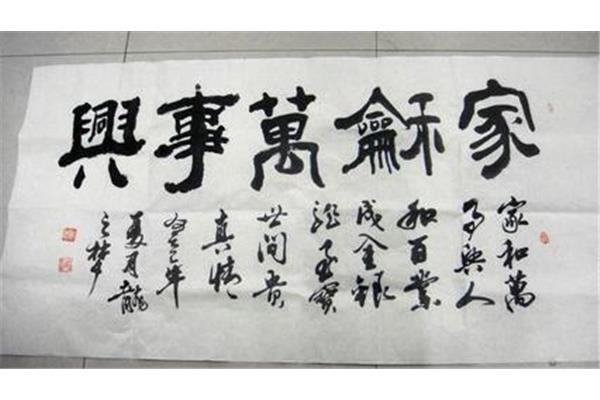 家龢萬事興
家和萬
事興人
和百業
成金銀
雖至寶
世間貴
真情
年
夏月龍
之